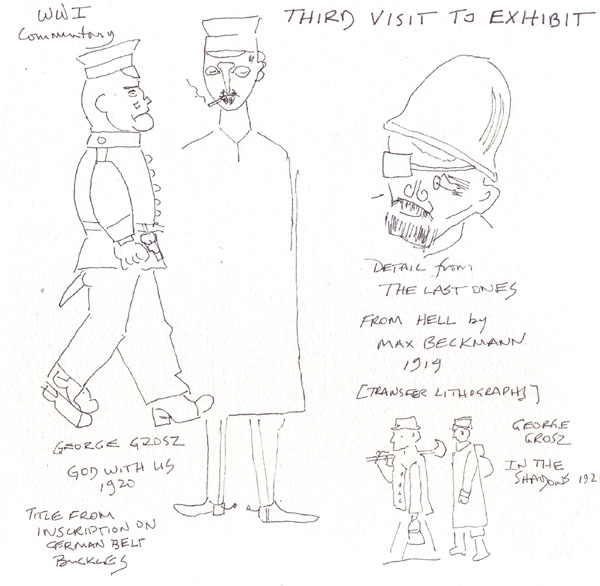 WWI
Commentary
THIRD VISIT TO EXHIBIT
DETAIL from
THE LAST ONES
FROM HELL by
MAX BECKMANN
1919
[TRANSFER LITHOGRAPHS]
GEORGE GROSZ
GOD WITH US
1920
TITLE FROM
INSCRIPTION ON
GERMAN BELT
BUCKLES
GEORGE
GROSZ
IN THE
SHADOWS